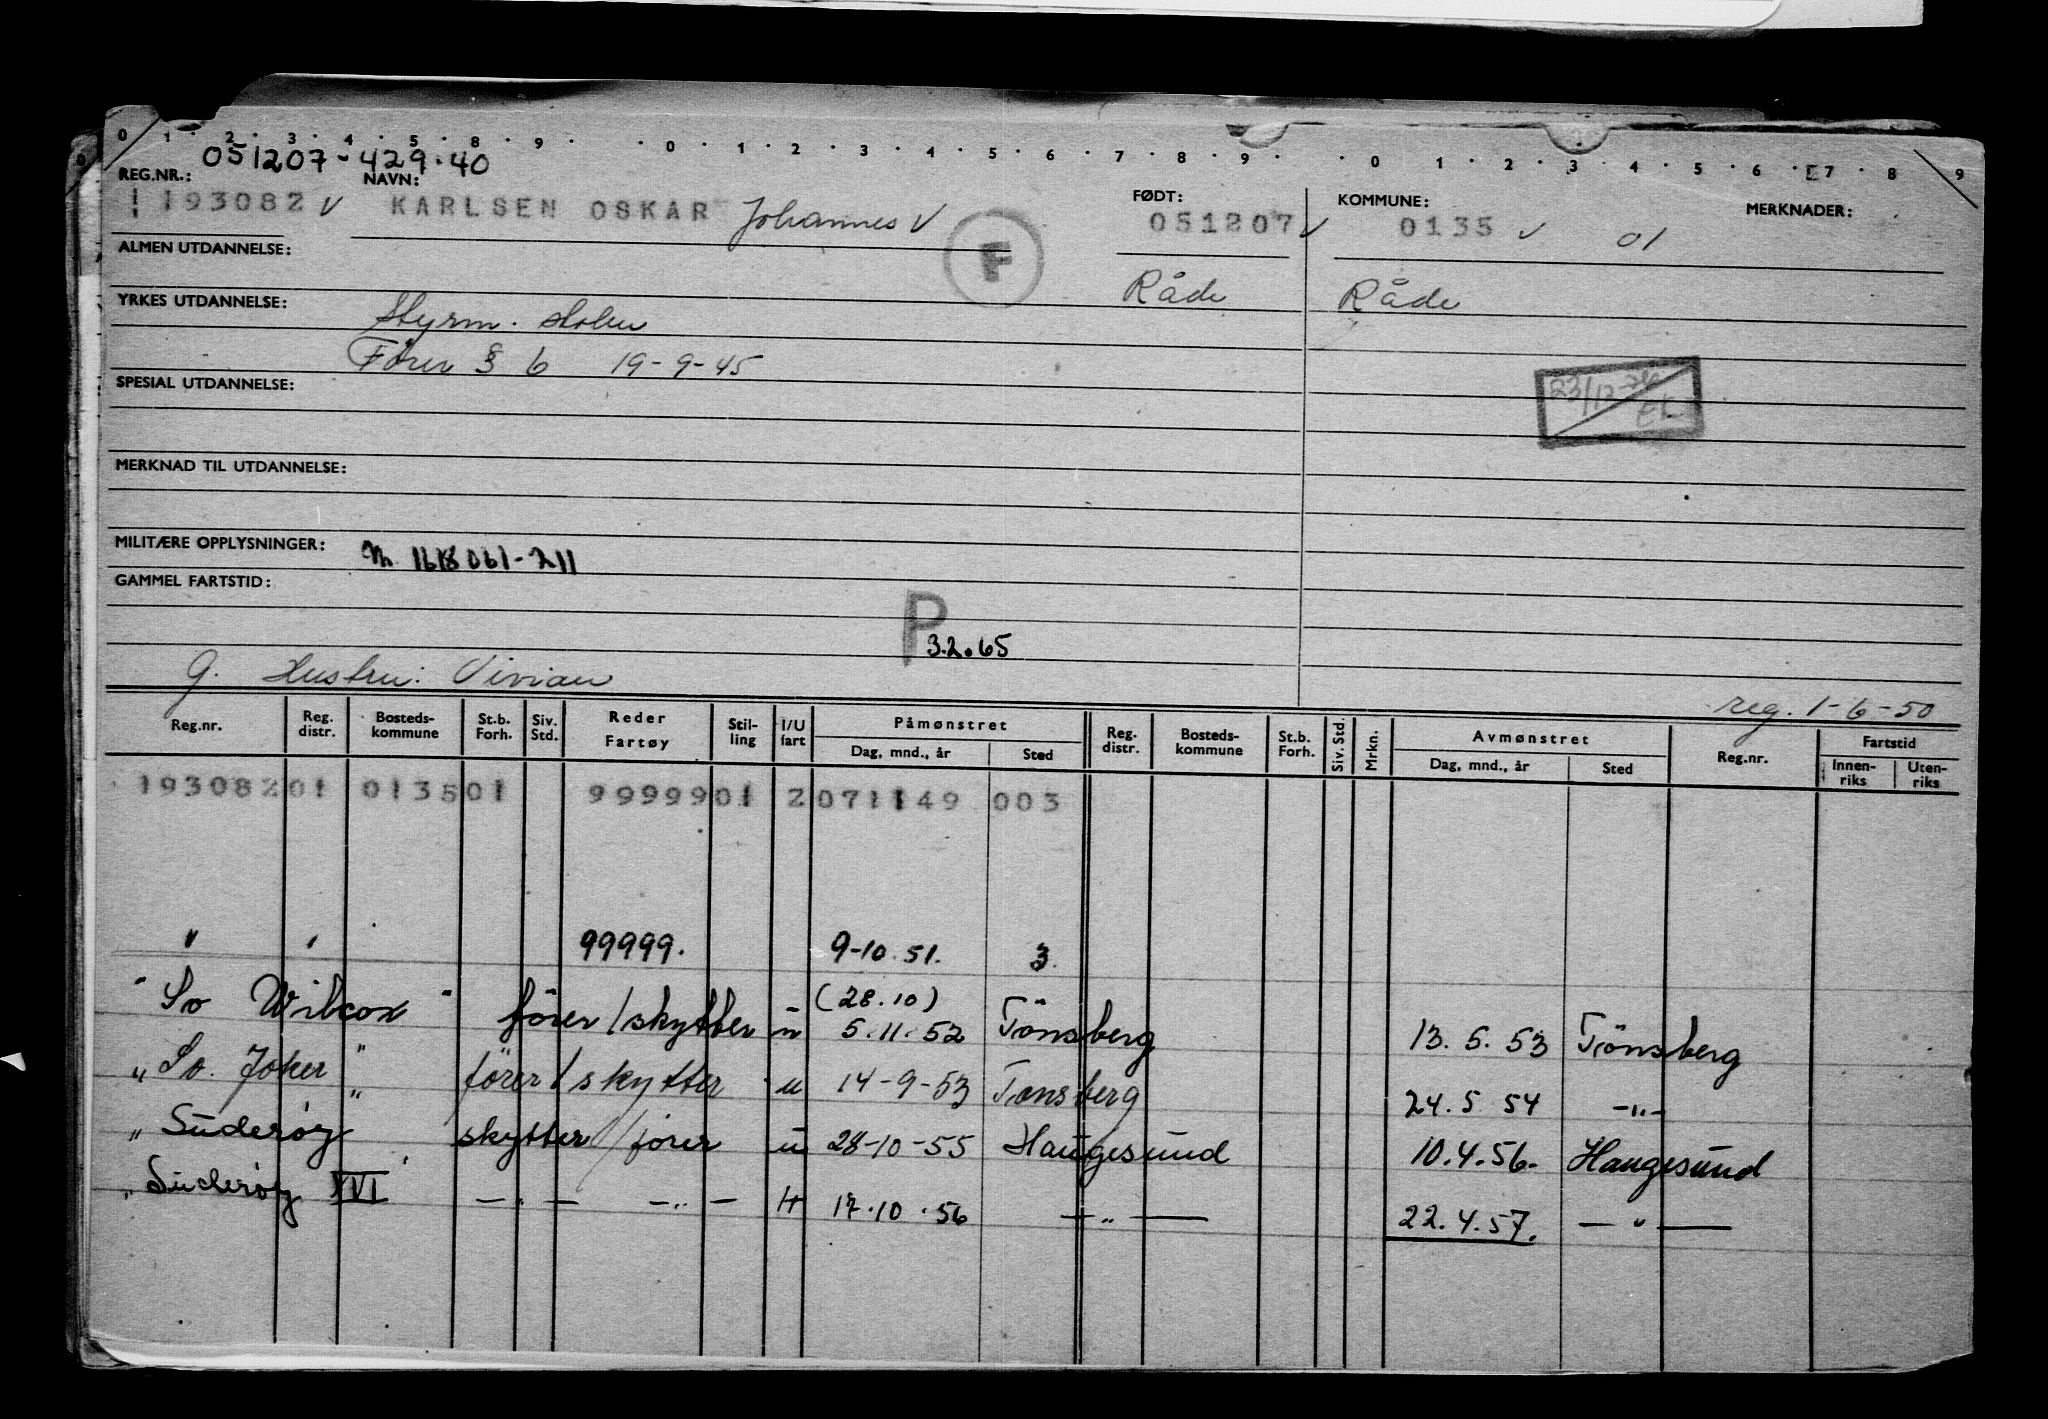 0 1 · 2 · 3 · 4 · 5 · 8 · 9 · · 0 · 1 · 2 · 3 · 4 · 5 · 6 · 7 · 8 · 9 · · 0 1 · 2 · 3 · 4 · 5 · 6 · E7 · 8 · 9
REG.NR.: 051207-429.40 NAVN: FØDT: KOMMUNE: MERKNADER:
193082 V KARLSEN OSKAR Johannes V 051207 V 0135 V 01
ALMEN UTDANNELSE: F
YRKES UTDANNELSE: Styrm. skolen Råde Råde
Fører § 6 19-9-45
SPESIAL UTDANNELSE: 23/12
MERKNAD TIL UTDANNELSE:
MILITÆRE OPPLYSNINGER: M 1618061-211
GAMMEL FARTSTID:
P 3.2.65
G. Hustru: Vivian reg. 1-6-50
Reg.nr. Reg. distr. Bosteds- kommune St.b. Forh. Siv. Std. Reder Fartøy Stil- ling I/U fart Påmønstret Dag, mnd., år Sted Reg. distr. Bosteds- kommune St.b. Forh. Siv. Std. Mrkn. Avmønstret Dag, mnd., år Sted Reg.nr. Fartstid Innen- riks Uten- riks
193082 01 0135 01 99999 01 2 071149 003
" " 99999. 9-10.51. 3.
(28.10)
" So Wilcox " fører/skytter u 5.11.52 Tönsberg 13.5.53 Tönsberg
" So. Joker " fører/skytter u 14-9-53 Tønsberg 24.5 54 -"-
" Suderøy " skytter/fører u 28-10-55 Haugesund 10.4.56- Haugesund
" Suderøy XVI " —"— —"— H 17.10.56 —"— 22.4.57. —"—